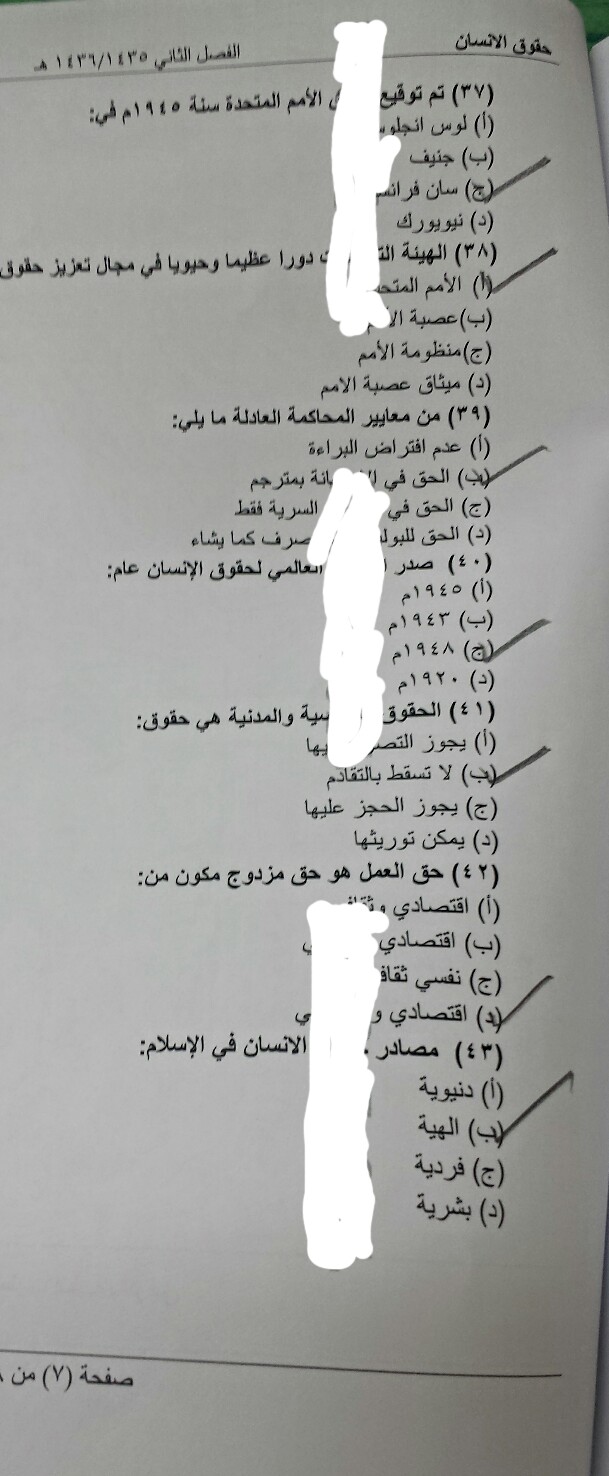 حقوق الانسان
الفصل الثاني ١٤٣٦/١٤٣٥ هـ
(٣٧) تم توقيع الأمم المتحدة سنة ١٩٤٥م في:
(أ) لوس
(ب) جنيف
(ج) سان
(د) نيويورك
(٣٨) الهيئة دورا عظيما وحيويا في مجال تعزيز حقوق
(أ) الأمم
(ب) عصبة
(ج) منظومة الأمم
(د) ميثاق عصبة الامم
(٣٩) من معايير المحاكمة العادلة ما يلي:
(أ) عدم افتراض البراءة
(ب) الحق في بمترجم
(ج) الحق في السرية فقط
(د) الحق كما يشاء
(٤٠) صدر العالمي لحقوق الإنسان عام:
(أ) ١٩٤٥م
(ب) ١٩٤٣م
(ج) ١٩٤٨م
(د) ١٩٢٠م
(٤١) الحقوق والمدنية هي حقوق:
(أ) يجوز
(ب) لا تسقط بالتقادم
(ج) يجوز الحجز عليها
(د) يمكن توريثها
(٤٢) حق العمل هو حق مزدوج مكون من:
(أ) اقتصادي
(ب) اقتصادي
(ج) نفسي
(د) اقتصادي
(٤٣) مصادر الانسان في الإسلام:
(أ) دنيوية
(ب) الهية
(ج) فردية
(د) بشرية
صفحة (٧) من